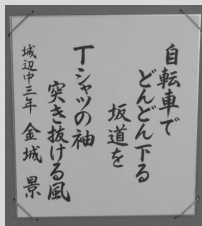 自転車で
どんどん下る
坂道を
Tシャツの袖
突き抜ける風
城辺中三年 金城 景